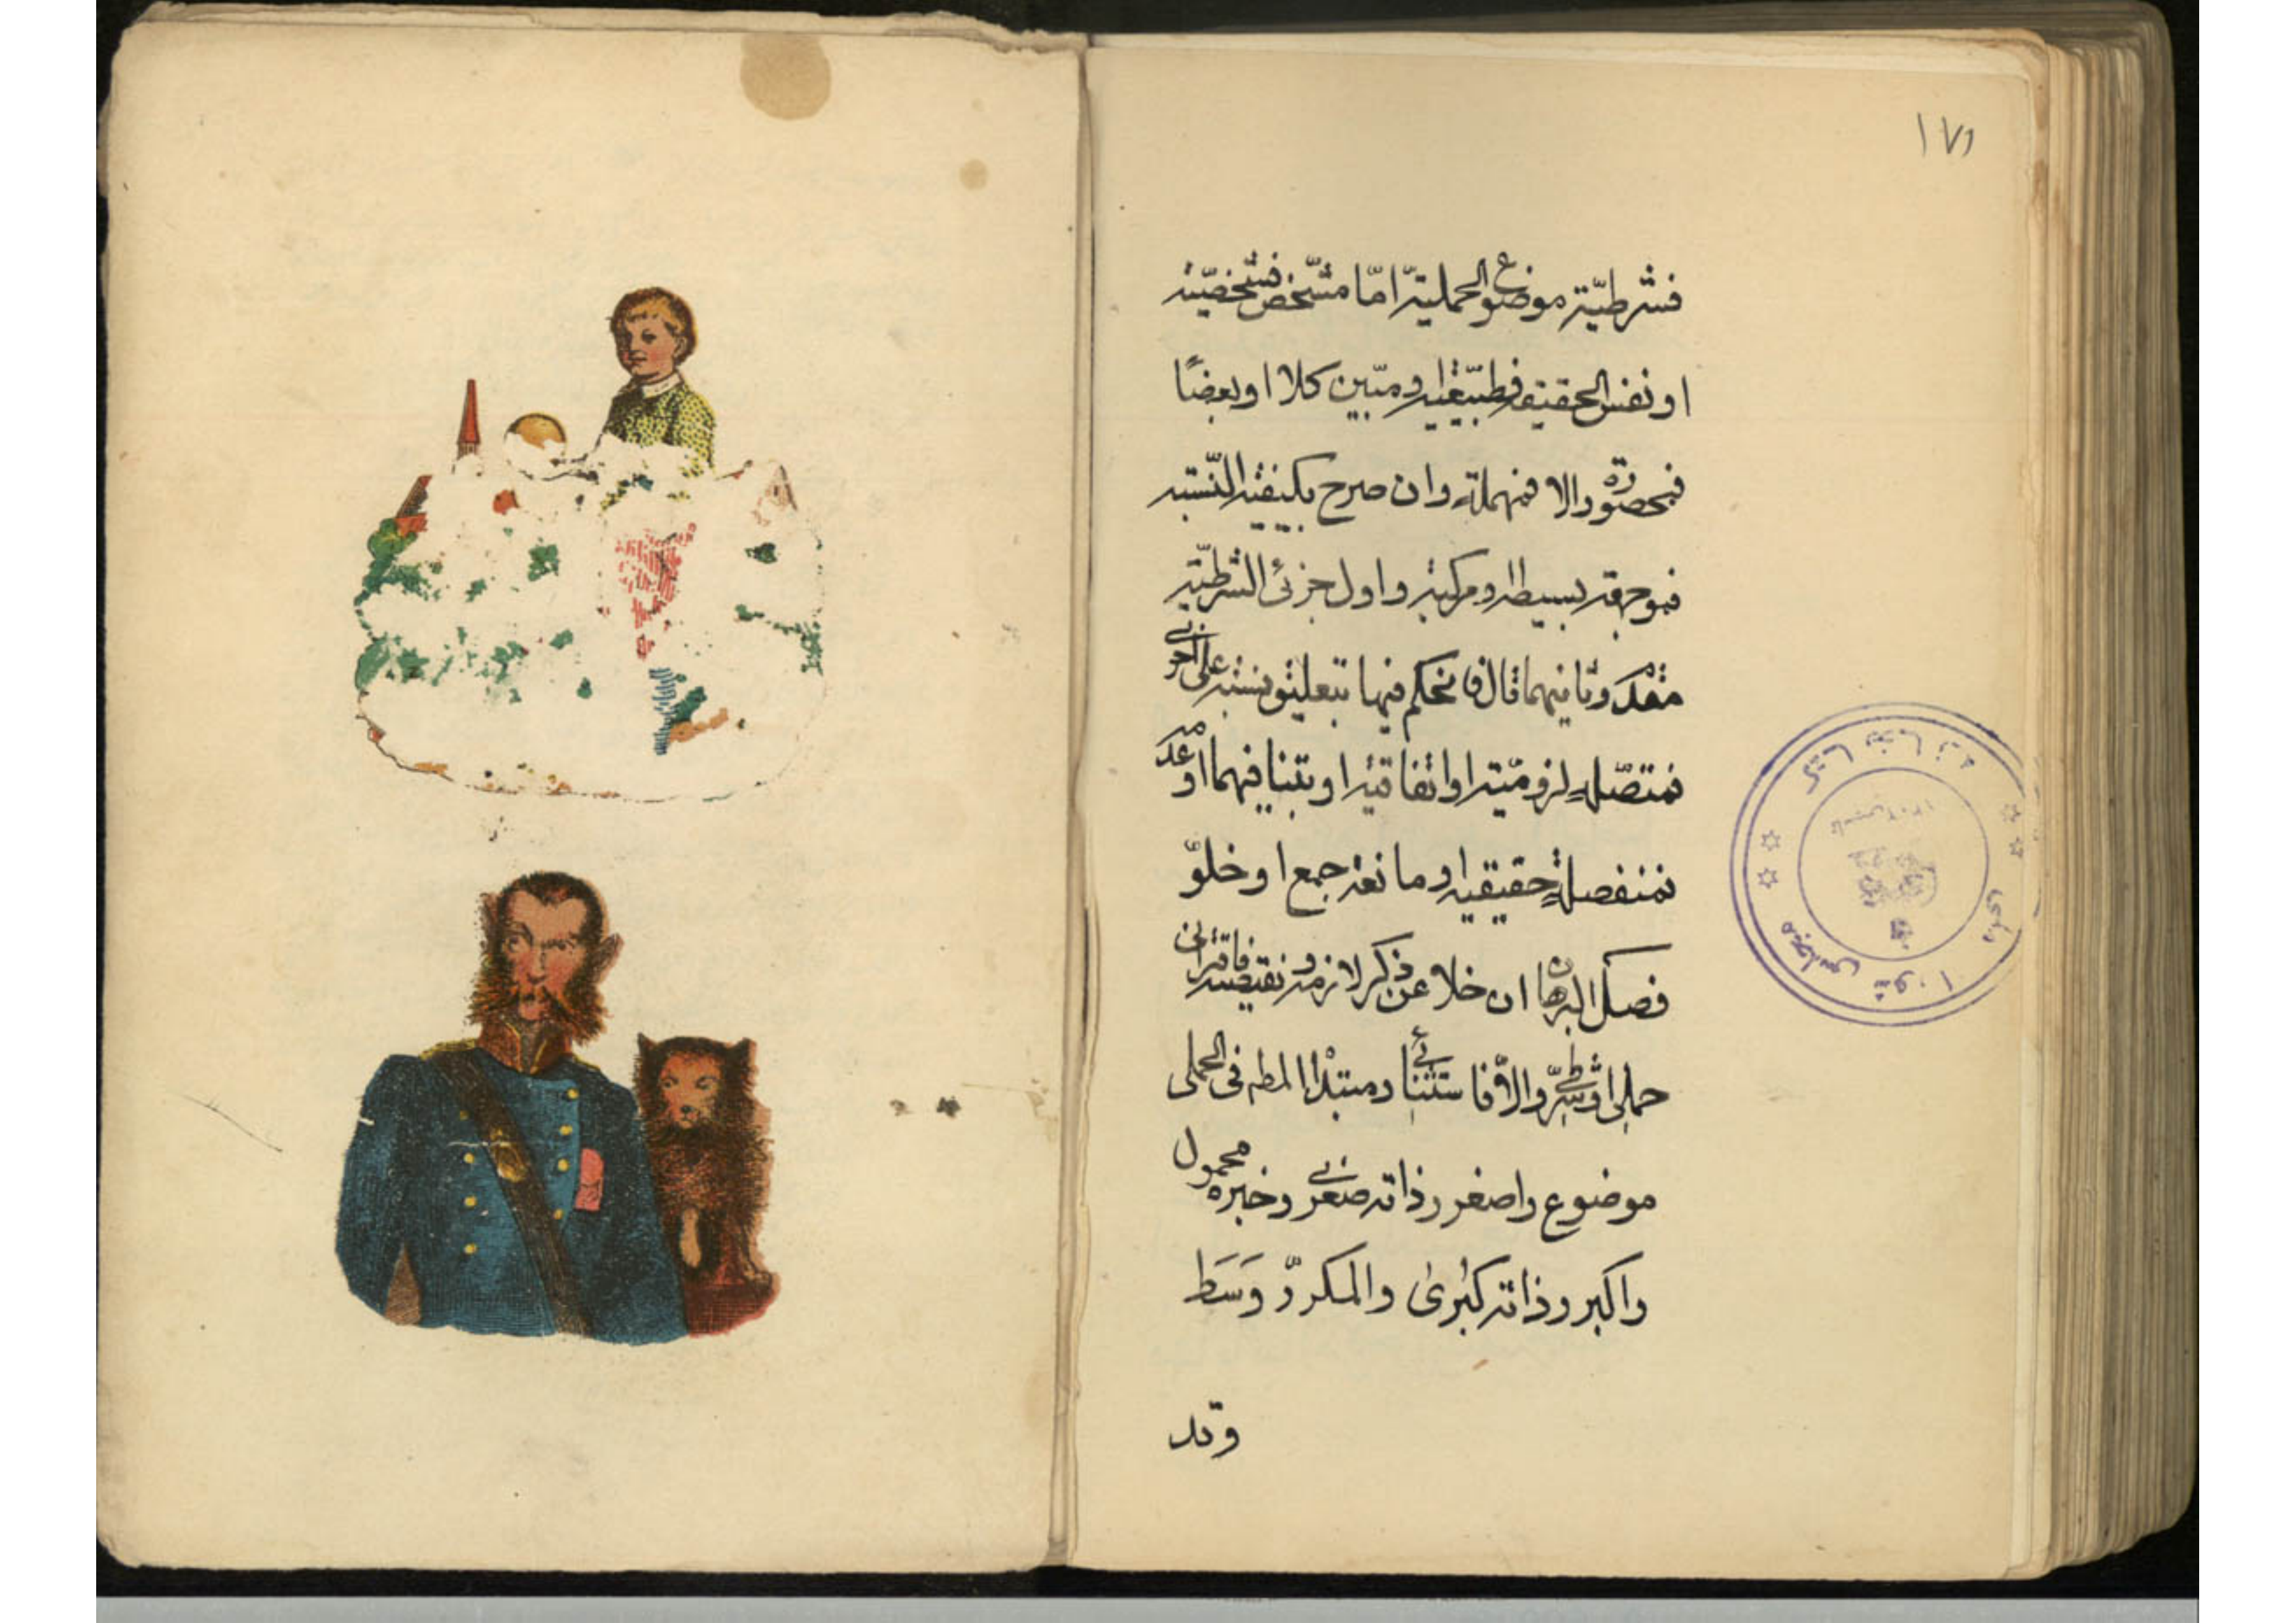 ۱۷۶
فشرطیّة موضوع الحملیة امّا مشخّص فشخصیّة
او نفس الحقیقة فطبیعیة او مبیّن کلا او بعضًا
فمحصورة والا فمهملة وان صرح بکیفیة النّسبة
فموجهة بسیطة او مرکبة واول جزئی الشرطیّة
مقدم وثانیهما تال فان حکم فیها بتعلیق نسبة علی اخری
فمتصّلة لزومیّة او اتفاقیة او بتنافیهما او عدمه
فمنفصلة حقیقیة او مانعة جمع او خلوّ
فصل البرهان ان خلا عن ذکر لازمه و نقیضه فاقترانی
حملی او شرطیّ والّا فاستثنائی ومبتدا المط فی الحملی
موضوع واصغر وذاته صغری وخبره محمول
واکبر وذاته کبری والمکررّ وَسَط
وقد
کتابخانه
مجلس شورا
ملی